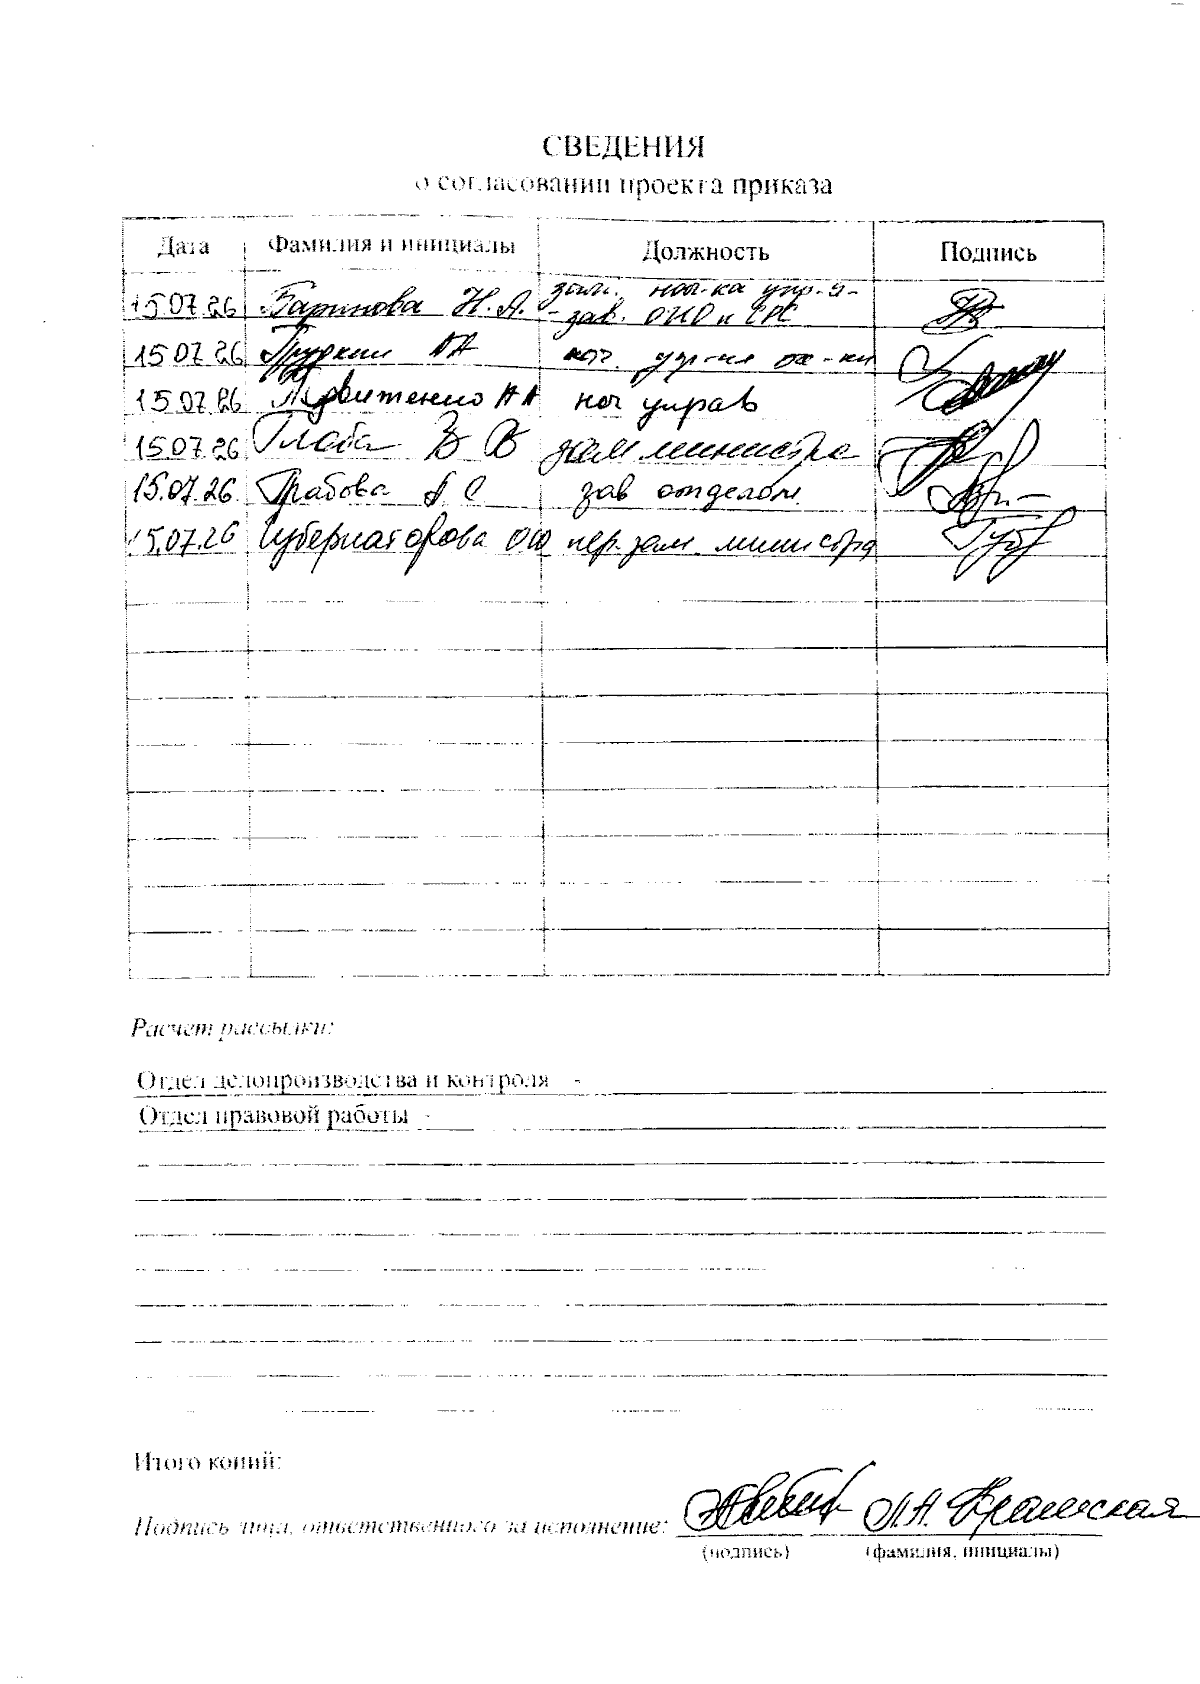 СВЕДЕНИЯ
о согласовании проекта приказа
Дата Фамилия и инициалы Должность Подпись
15.07.26 Баринова Н.А. зам. нач-ка упр-я -
- зав. ОНО и СРС
15 07 26 АА нач. упр-ия
15.07.26 АА нач управ
15.07.26 Глаба В В зам министра
15.07.26. Грабова А С зав отделом
15.07.26 Губернаторова ОЮ пер. зам. министра
Расчет рассылки:
Отдел делопроизводства и контроля -
Отдел правовой работы -
Итого копий:
Подпись лица, ответственного за исполнение: Л.А.
(подпись) (фамилия, инициалы)